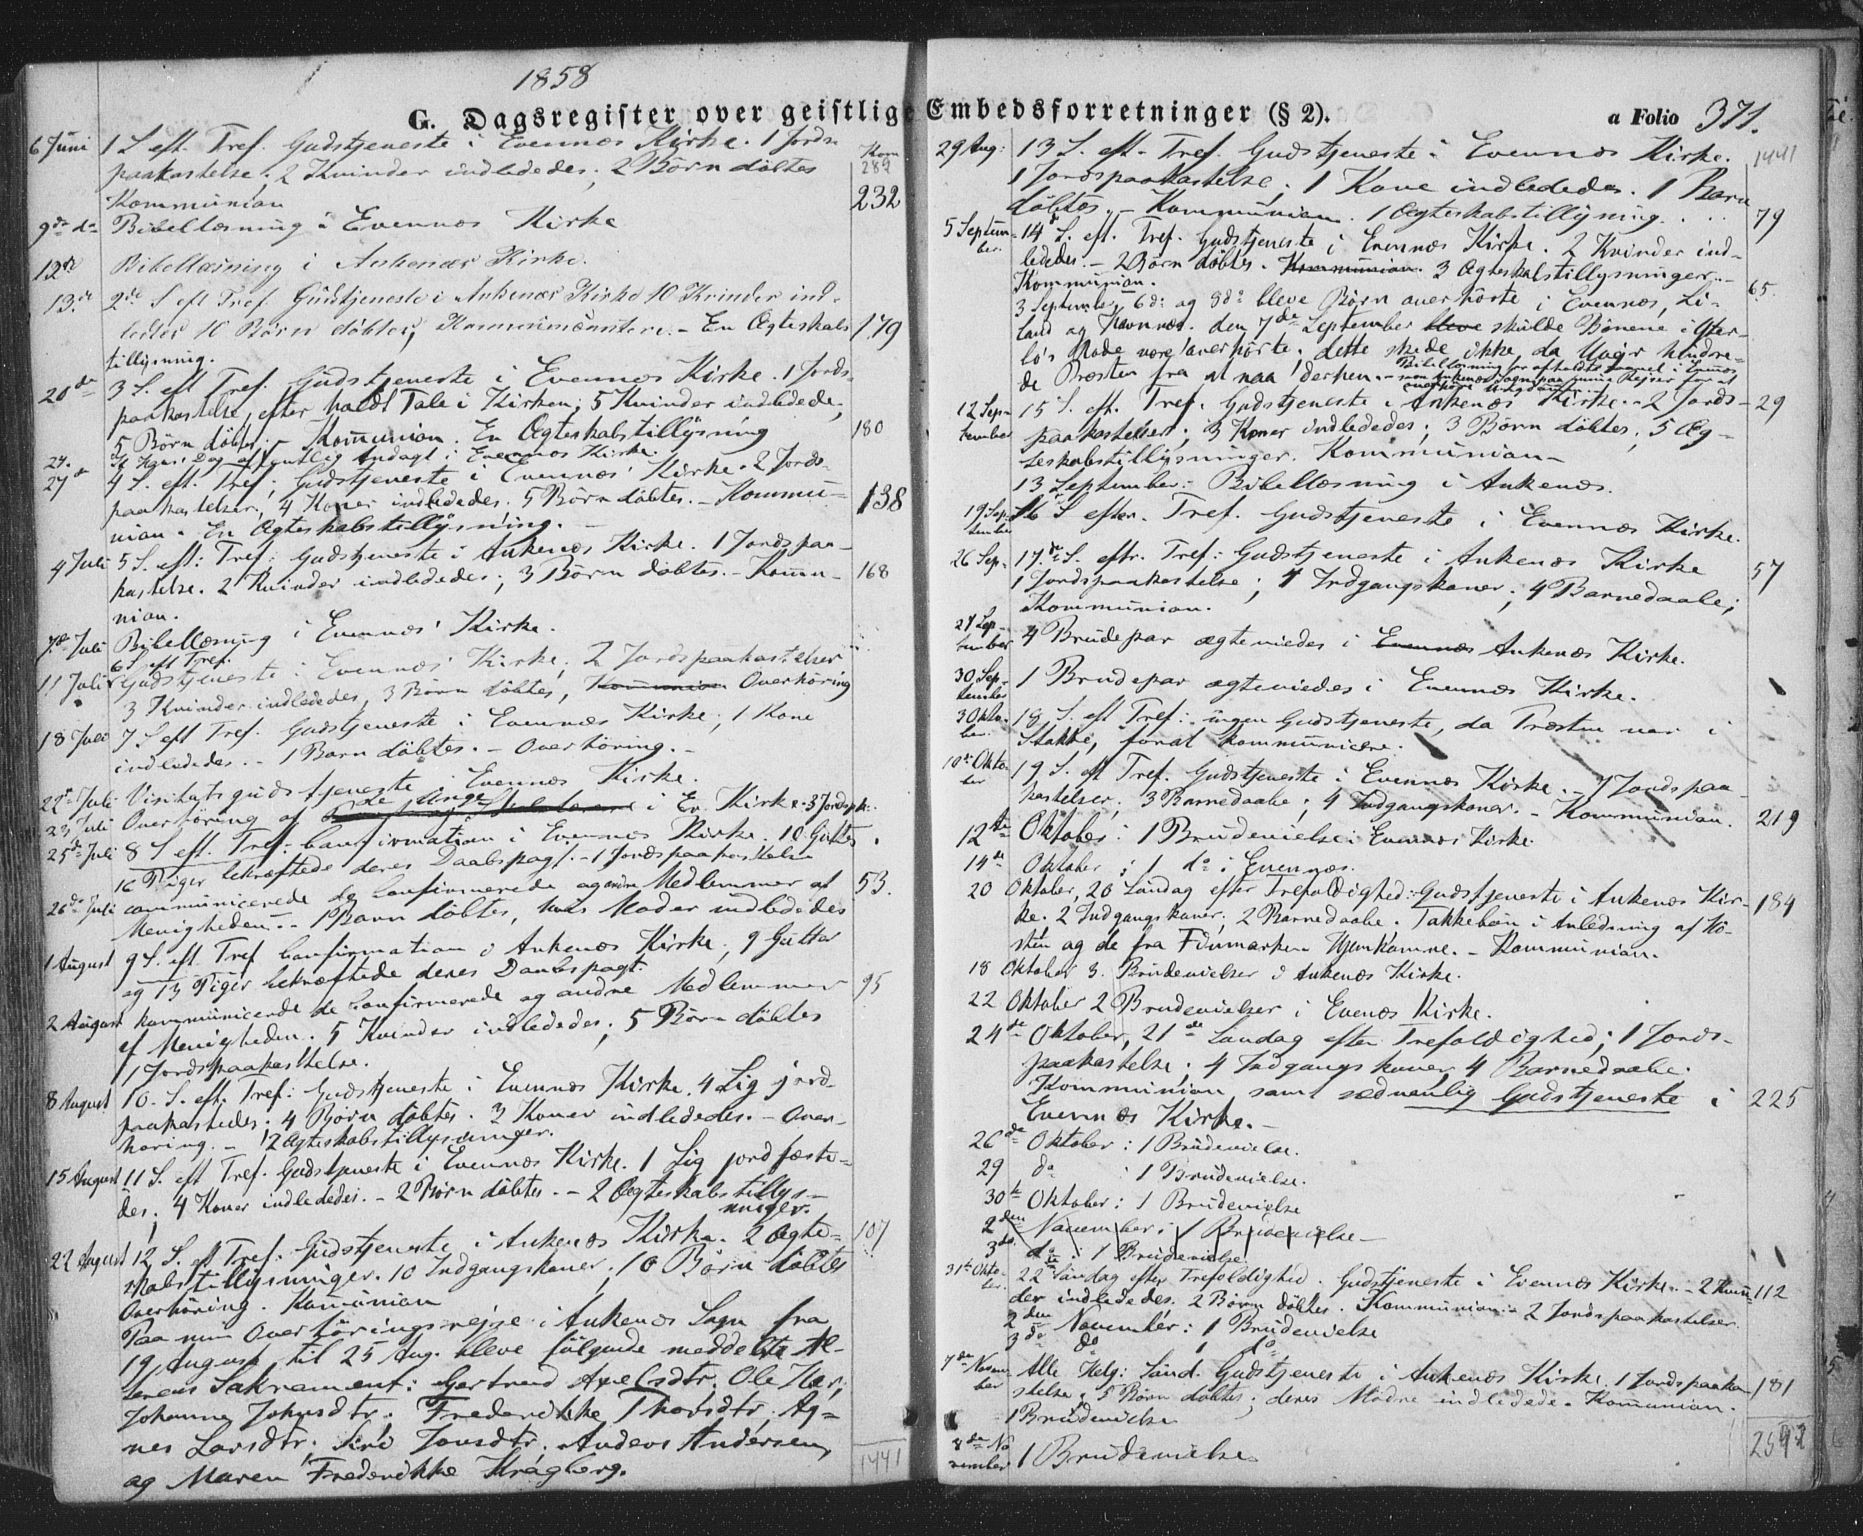 1858
G. Dagsregister over geistlige Embedsforretninger (§ 2).
a Folio 371.
6 Juni 1 S. eft. Tref. Gudstjeneste i Evennes Kirke. 1 Jords-
paakastelse; 2 Kvinder indlededes; 2 Børn døbtes
Kommunion 289 232
9de do Bibellæsning i Evennes Kirke
12te Bibellæsning i Ankenæs Kirke.
13de 2de S eft Tref. Gudstjeneste i Ankenæs Kirke 10 Kvinder ind-
ledes 10 Børn døbtes, - En Ægteskabs 179
tillysning.
20de 3 S. eft Tref. Gudstjeneste i Evennes Kirke. 1 Jords-
paakastelse efter holdt Tale i Kirken; 5 Kvinder indledede,
5 Børn døbtes; Kommunion. En Ægteskabstillysning 180
24. St Hans Dag offentlig Andagt i Evennes Kirke.
27de 4 S. eft. Tref; Gudstjeneste i Evennes Kirke. 2 Jords-
paakastelser, 4 Koner indlededes. 5 Børn døbtes. - Kommu- 138
nion. En Ægteskabstillysning.
4 Juli 5 S. eft: Tref: Gudstjeneste i Ankenæs Kirke. 1 Jordspaa-
kastelse. 2 Kvinder indlededes; 3 Børn døbtes. - Kommu- 168
nion.
7de Juli Bibellæsning i Evennes Kirke.
6 S eft Tref.
11 Juli Gudstjeneste i Evennes Kirke; 2 Jordspaakastelser
3 Kvinder indlededes, 3 Børn døbtes, Kommunion Overhöring
18 Juli 7 S eft Tref. Gudstjeneste i Evennes Kirke; 1 Kone
indlededes. - 1 Barn döbtes. - Overhöring. -
22de Juli Visitatsgudstjeneste i Evennes Kirke.
23 Juli Overhöring af de Unge i Ev. Kirke. 3 Jordspk.
25de Juli 8 S eft. Tref. Confirmation i Evennes Kirke. 10 Gutter,
16 Piger bekræftede deres Daabspagt. - 1 Jordspaakastelse
26de Juli communicerede de Confirmerede og andre Medlemmer af 53.
Menigheden. - 1 Barn döbtes, hvis Moder indlededes
1 August 9 S. eft Tref Confirmation i Ankenæs Kirke, 9 Gutter
og 13 Piger bekræftede deres Daabspagt.
2 August kommunicerede de Confirmerede og andre Medlemmer 95
af Menigheden. 5 Kvinder indlededes; 5 Børn döbtes
1 Jordspaakastelse.
8 August 10. S. eft. Tref: Gudstjeneste i Evennes Kirke. 4 Lig jord-
paakastedes; 4 Børn döbtes. 3 Koner indlededes. - Over-
höring. - 2 Ægteskabstillysninger.
15 August 11 S. eft Tref. Gudstjeneste i Evennes Kirke. 1 Lig jordfæste-
des. 4 Koner indlededes. - 2 Børn döbtes. - 2 Ægteskabstillys-
ninger.
22 August 12 S. eft Tref. Gudstjeneste i Ankenæs Kirke. 2 Ægte- 107
skabstillysninger. 10 Indgangskoner. 10 Børn döbtes
Overhöring. Kommunion
Paa min Overhöringsrejse i Ankenæs Sogn fra
19 August til 25 Aug. bleve fölgende meddelte Al-
terens Sakrament: Gertrud Axelsdtr, Ole Hær,
Johanna Johnsdtr. Frederikke Thorsdtr, Ag-
nes Larsdtr. Siri Jonsdtr. Anders Andersen,
og Maren Frederikke Kragberg. 1441
29 Aug: 13 S. eft. Tref. Gudstjeneste i Evennes Kirke. 1441
1 Jordspaakastelse; 1 Kone indlededes. 1 Barn
döbtes. - Kommunion. 1 Ægteskabstillysning. 79
5 Septem-
ber. 14de S. eft. Tref. Gudstjeneste i Evennes Kirke. 2 Kvinder ind-
ledede. - 2 Børn døbtes. Kommunion. 3 Ægteskabstillysninger.
Kommunion. 65
3 September, 6de og 8de bleve Børn overhörte i Evennes, Li-
land og Havnnes. den 7de September bleve skulde Börnene i
Mode være overhörte. dette skede ikke da Uveir hindre-
de Præsten fra at naa derhen.
12 Sep-
tember 15 S. eft. Tref. Gudstjeneste i Ankenæs Kirke. - 2 Jords- 29
paakastelser; 3 Koner indlededes; 3 Børn döbtes, 5 Æg-
teskabstillysninger. Kommunion -
13 September: Bibellæsning i Ankenæs.
19 Sep-
tember 16 S efter. Tref. Gudstjeneste i Evennes Kirke.
26 Sep- 17de S. eftr. Tref: Gudstjeneste i Ankenæs Kirke
1 Jordspaakastelse; 4 Indgangskoner; 4 Barnedaabe; 57
Kommunion.
27 Sep-
tember 4 Brudepar ægteviedes i Evennes Ankenæs Kirke.
30 Sep-
tember 1 Brudepar ægteviedes i Evennes Kirke.
3 Okto-
ber. 18 S. eft Tref: ingen Gudstjeneste, da Præsten var i
Stokke, forat kommunicere.
10de Okto-
ber 19 S. eft Tref. Gudstjeneste i Evennes Kirke. - 7 Jordspaa-
kastelser; 3 Barnedaabe; 4 Indgangskoner. - Kommunion. 219
12te Oktober: 1 Brudevielse i Evennes Kirke
14de Oktober: 1 do i Evennes.
20 Oktober, 20 Söndag efter Trefoldighed: Gudstjeneste i Ankenæs Kir- 184
ke. 2 Indgangskoner; 2 Barnedaabe. Takkebön i Anledning af Hö-
sten og de fra Finmarken Hjemkomne. - Kommunion.
18 Oktober 3. Brudevielser i Ankenæs Kirke.
22 Oktober 2 Brudevielser i Evenes Kirke.
24de Oktober, 21de Söndag efter Trefoldighed; 1 Jords-
paakastelse; 4 Indgangskoner 4 Barnedaabe.
Kommunion samt sædvanlig Gudstjeneste i 225
Evennes Kirke. -
26de Oktober: 1 Brudevielse.
29 do : 1 Brudevielse.
30te Oktober: 1 Brudevielse
2den November: 1 Brudevielse
3de do : 1 Brudevielse
31te Okto-
ber. 22de Söndag efter Trefoldighed. Gudstjeneste i Evennes Kirke. - 2 Kvin- 112
der indlededes. 2 Børn döbtes. Kommunion. - 2 Jordspaakastelser
2den November: 1 Brudevielse
3de do 1 do
7de Novem-
ber Alle Helg: Sönd. Gudstjeneste i Ankenæs Kirke. 1 Jordspaaka- 181
stelse; 5 Børn döbtes; deres Mödre indledede. Kommunion.
1 Brudevielse
8de No-
vember 1 Brudevielse